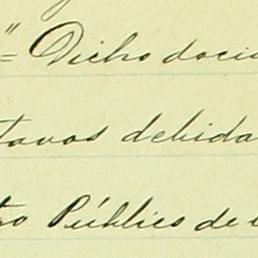 "= Dicho docu
tavos debida
to Público de